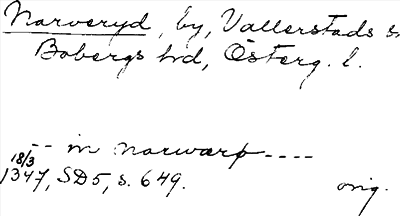 Narveryd, by, Vallerstads s.
Bobergs hd, Österg. l.
-- in narwarp ----
18/3
1347, SD5, s. 649. orig.